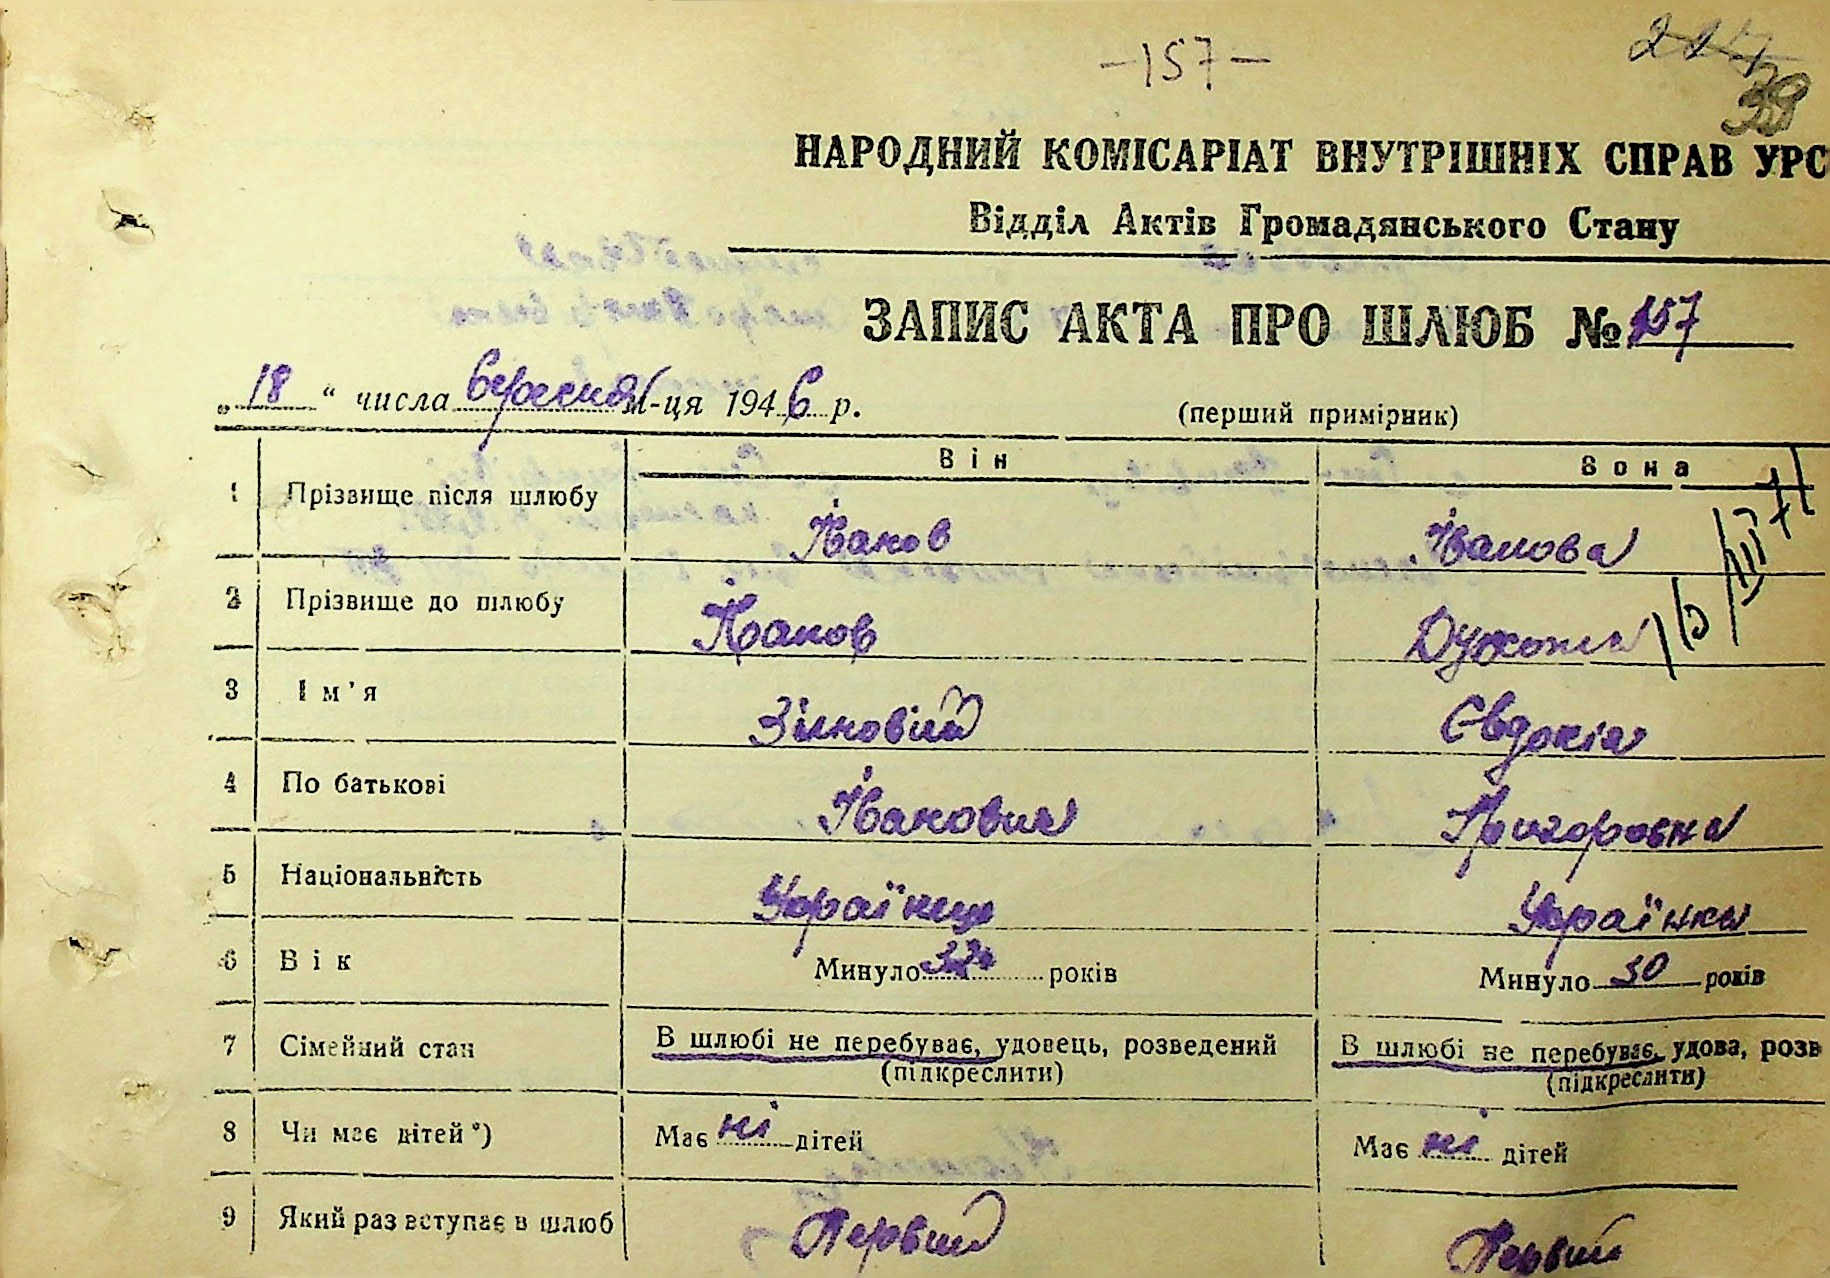 -157-
39
НАРОДНИЙ КОМІСАРІАТ ВНУТРІШНІХ СПРАВ УРС
Відділ Актів Громадянського Стану
ЗАПИС АКТА ПРО ШЛЮБ № 157
„18“ числа вересня м-ця 1946 р.
(перший примірник)
Він Вона
1 Прізвище після шлюбу Іванов Іванова
2 Прізвище до шлюбу Іванов
3 Ім'я Зіновій Євдокія
4 По батькові Іванович Григоровна
5 Національність Українець Українка
6 Вік Минуло 32 років Минуло 30 років
7 Сімейний стан В шлюбі не перебуває, удовець, розведений В шлюбі не перебуває, удова, розв
(підкреслити) (підкреслити)
8 Чи має дітей*) Має ні дітей Має ні дітей
9 Який раз вступає в шлюб Первий Первий